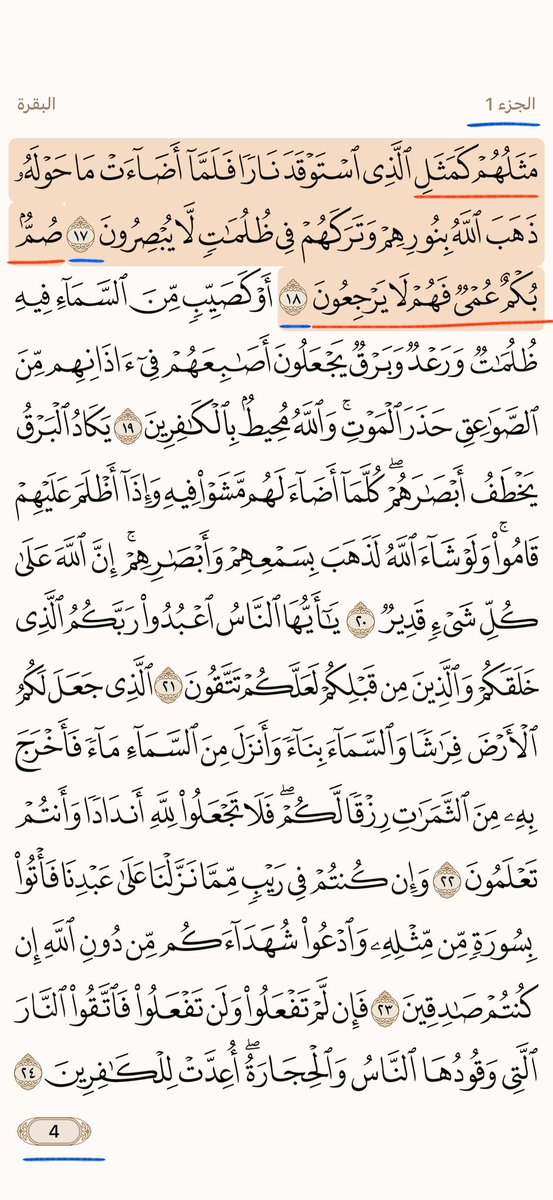 الجزء 1 البقرة
مَثَلُهُمْ كَمَثَلِ ٱلَّذِى ٱسْتَوْقَدَ نَارًا فَلَمَّآ أَضَآءَتْ مَا حَوْلَهُۥ
ذَهَبَ ٱللَّهُ بِنُورِهِمْ وَتَرَكَهُمْ فِى ظُلُمَٰتٍ لَّا يُبْصِرُونَ ١٧ صُمٌّۢ
بُكْمٌ عُمْىٌ فَهُمْ لَا يَرْجِعُونَ ١٨ أَوْ كَصَيِّبٍ مِّنَ ٱلسَّمَآءِ فِيهِ
ظُلُمَٰتٌ وَرَعْدٌ وَبَرْقٌ يَجْعَلُونَ أَصَٰبِعَهُمْ فِىٓ ءَاذَانِهِم مِّنَ
ٱلصَّوَٰعِقِ حَذَرَ ٱلْمَوْتِ ۚ وَٱللَّهُ مُحِيطٌۢ بِٱلْكَٰفِرِينَ ١٩ يَكَادُ ٱلْبَرْقُ
يَخْطَفُ أَبْصَٰرَهُمْ ۖ كُلَّمَآ أَضَآءَ لَهُم مَّشَوْا۟ فِيهِ وَإِذَآ أَظْلَمَ عَلَيْهِمْ
قَامُوا۟ ۚ وَلَوْ شَآءَ ٱللَّهُ لَذَهَبَ بِسَمْعِهِمْ وَأَبْصَٰرِهِمْ ۚ إِنَّ ٱللَّهَ عَلَىٰ
كُلِّ شَىْءٍ قَدِيرٌ ٢٠ يَٰٓأَيُّهَا ٱلنَّاسُ ٱعْبُدُوا۟ رَبَّكُمُ ٱلَّذِى
خَلَقَكُمْ وَٱلَّذِينَ مِن قَبْلِكُمْ لَعَلَّكُمْ تَتَّقُونَ ٢١ ٱلَّذِى جَعَلَ لَكُمُ
ٱلْأَرْضَ فِرَٰشًا وَٱلسَّمَآءَ بِنَآءً وَأَنزَلَ مِنَ ٱلسَّمَآءِ مَآءً فَأَخْرَجَ
بِهِۦ مِنَ ٱلثَّمَرَٰتِ رِزْقًا لَّكُمْ ۖ فَلَا تَجْعَلُوا۟ لِلَّهِ أَندَادًا وَأَنتُمْ
تَعْلَمُونَ ٢٢ وَإِن كُنتُمْ فِى رَيْبٍ مِّمَّا نَزَّلْنَا عَلَىٰ عَبْدِنَا فَأْتُوا۟
بِسُورَةٍ مِّن مِّثْلِهِۦ وَٱدْعُوا۟ شُهَدَآءَكُم مِّن دُونِ ٱللَّهِ إِن
كُنتُمْ صَٰدِقِينَ ٢٣ فَإِن لَّمْ تَفْعَلُوا۟ وَلَن تَفْعَلُوا۟ فَٱتَّقُوا۟ ٱلنَّارَ
ٱلَّتِى وَقُودُهَا ٱلنَّاسُ وَٱلْحِجَارَةُ ۖ أُعِدَّتْ لِلْكَٰفِرِينَ ٢٤
4